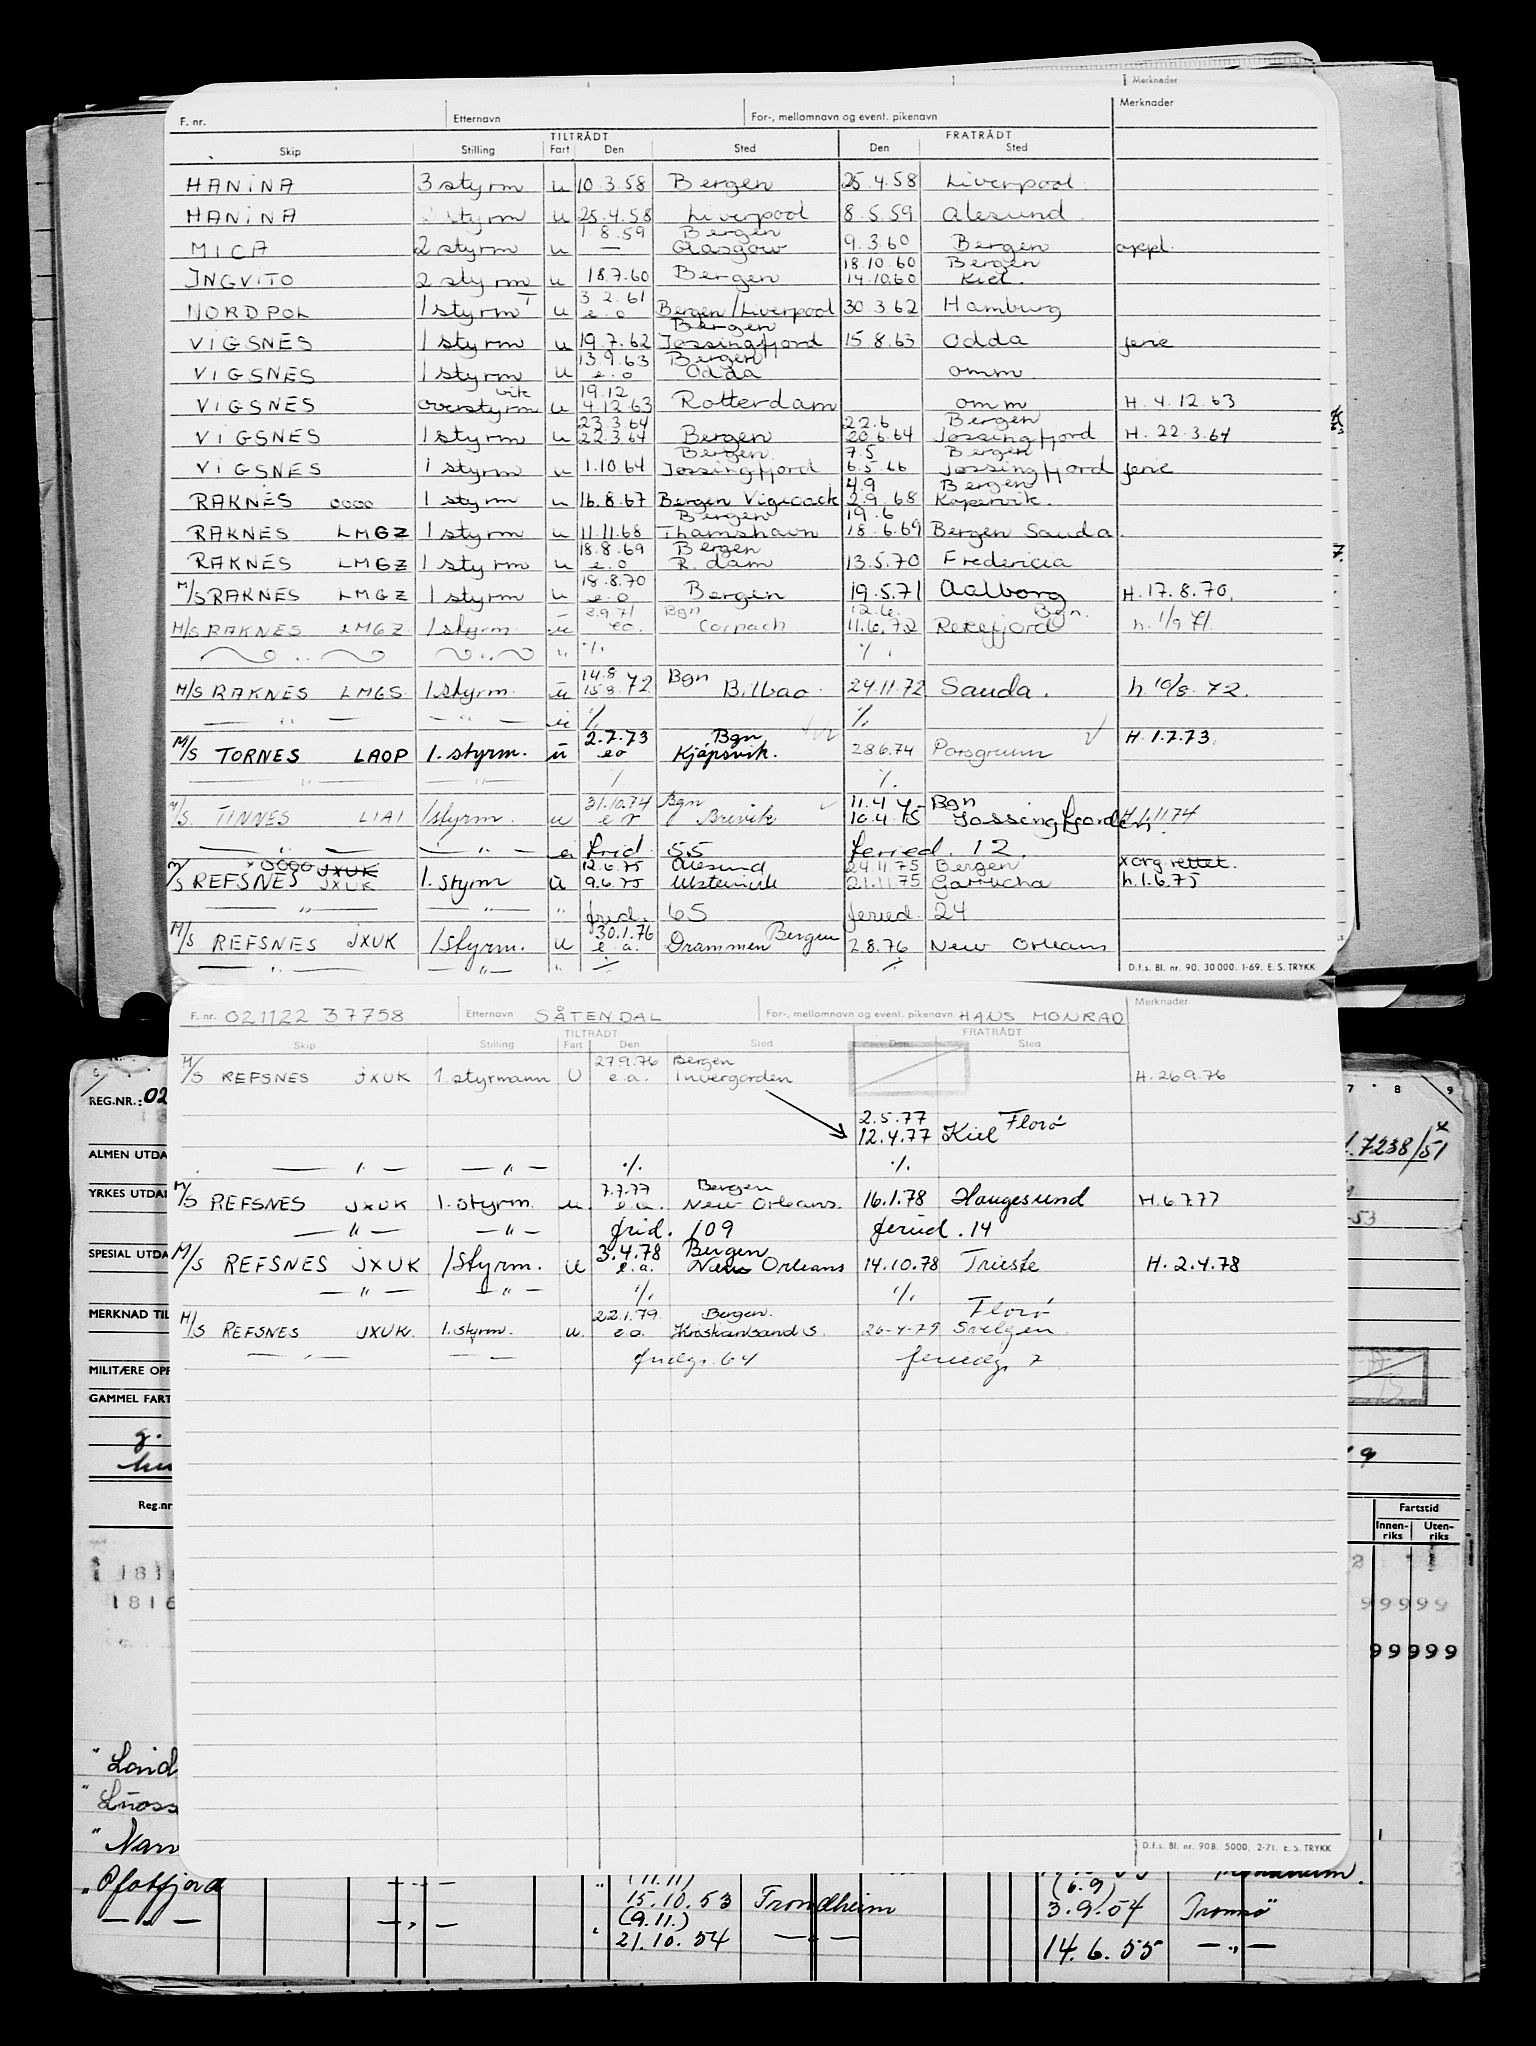 Merknader
F. nr. Etternavn For-, mellomnavn og event. pikenavn Merknader
TILTRÅDT FRATRÅDT
Skip Stilling Fart Den Sted Den Sted
HANINA 3 styrm u 10.3.58 Bergen 25.4.58 Liverpool
HANINA 2 styrm u 25.4.58 Liverpool 8.5.59 Alesund
1.8.59 Bergen
MICA 2 styrm u — Glasgow 9.3.60 Bergen oppl.
18.10.60 Bergen
INGVITO 2 styrm u 18.7.60 Bergen 14.10.60 Kiel.
3.2.61
NORDPOL 1 styrm u e.o Bergen/Liverpool 30.3.62 Hamburg
Bergen
VIGSNES 1 styrm u 19.7.62 Jøssingfjord 15.8.63 Odda ferie
13.9.63 Bergen
VIGSNES 1 styrm u e.o Odda omm
vik 19.12
VIGSNES overstyrm u 4.12.63 Rotterdam omm H. 4.12.63
23.3.64 22.6 Bergen
VIGSNES 1 styrm u 22.3.64 Bergen 20.6.64 Jøssingfjord H. 22.3.64
Bergen 7.5 Bergen
VIGSNES 1 styrm u 1.10.64 Jøssingfjord 6.5.66 Jøssingfjord ferie
4.9 Bergen
RAKNES oooo 1 styrm u 16.8.67 Bergen 2.9.68 Kopervik.
Bergen 19.6
RAKNES LMGZ 1 styrm u 11.11.68 Thamshavn 18.6.69 Bergen Sauda.
18.8.69 Bergen
RAKNES LMGZ 1 styrm u e.o R.dam 13.5.70 Fredericia
18.8.70
M/S RAKNES LMGZ 1 styrm u e.o Bergen 19.5.71 Aalborg H. 17.8.70.
2.9.71 Bgn 12.6. Bgn.
M/S RAKNES LMGZ 1 styrm. u eo. Corpach 11.6.72 Rekefjord h. 1/9 71.
" ./. ./.
14.8 Bgn
M/S RAKNES LMGS 1 styrm. u 15.8.72 Bilbao. 24.11.72 Sauda. h. 10/8. 72.
— " — — " — u ./. ./.
2.7.73 Bgn
M/S TORNES LAOP 1. styrm. u eo Kjøpsvik. 28.6.74 Porsgrunn H. 1.7.73.
" " ./. ./.
31.10.74 Bgn 11.4 Bgn
M/S. TINNES LIAI 1 styrm. u e o Brevik 10.4.75 Jøssingfjorden. H. 1.11.74
— " — — " — u frid. 55 feried. 12.
oooo JXUK 12.6.75 Ålesund 24.11.75 Bergen x org rettet.
M/S REFSNES JXUK 1. styrm u 9.6.75 Ulsteinvik 21.11.75 Garrucha h. 1.6.75
— " — — " — " frid. 65 feried. 24
30.1.76 Bergen
M/S REFSNES JXUK 1 styrm. u e.a. Drammen 2.8.76 New Orleans
— " — — " — " ./. ./.
D.f.s. Bl. nr. 90. 30 000. 1-69. E. S. TRYKK
F. nr. 021122 37758 Etternavn SÅTENDAL For-, mellomnavn og event. pikenavn HANS MONRAD Merknader
TILTRÅDT FRATRÅDT
Skip Stilling Fart Den Sted Den Sted
27.9.76 Bergen
M/S REFSNES JXUK 1. styrmann U e.a. Invergorden H. 26.9.76
2.5.77 Florø
12.4.77 Kiel
— " — — " — ./. ./.
7.7.77 Bergen
M/S REFSNES JXUK 1. styrm. u. e.a. New Orleans. 16.1.78 Haugesund H. 6.7.77
— " — — " — frid. 109 feried. 14
3.4.78 Bergen
M/S REFSNES JXUK 1 styrm. u e.a. New Orleans 14.10.78 Trieste H. 2.4.78
— " — — " — ./. ./.
22.1.79. Bergen. Florø
M/S REFSNES JXUK. 1. styrm. u. e.o. Kristiansand S. 26-4-79 Svelgen.
— " — — — fridgr. 64 feriedg. 7
D.f.s. Bl. nr. 90B. 5000. 2-71. E. S. TRYKK
REG.NR.: 02
ALMEN UTDA
YRKES UTDA
SPESIAL UTDA
MERKNAD TIL
MILITÆRE OPP
GAMMEL FART
Reg.nr
181
1816
7 8 9
1.7238/51
53
Fartstid
Innen-riks Uten-riks
99999
99999
" Land
" Luoss
" Narv
" Ofotfjord — " — " 15.10.53 Trondheim 3.9.54 Tromsø
(11.11) (6.9)
— " — — " — " (9.11.)
21.10.54 — " — 14.6.55 — " —